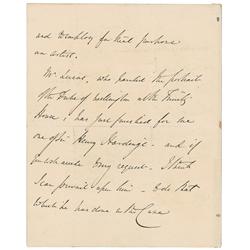 and employ for that purpose
an artist.
Mr Lucas, who painted the portrait
of the Duke of Wellington at the Trinity
House; has just finished for me
one of Sir Henry Hardinge - and if
you will make my request - I think
I can prevail upon him - to do that
which he has done in the Case